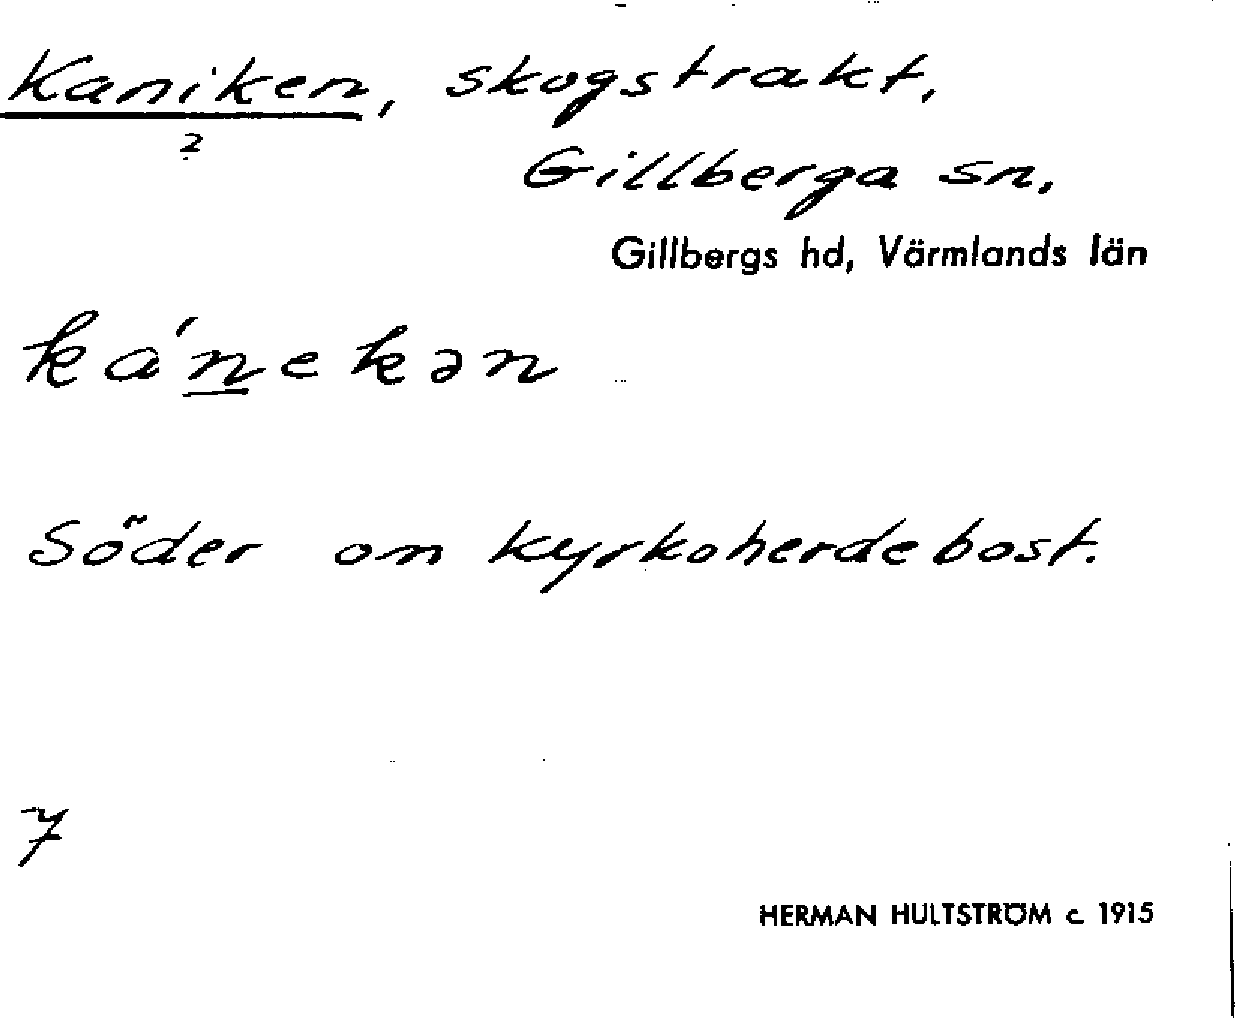 Kaniken, skogstrakt,
?
Gillberga sn.
Gillbergs hd, Värmlands län
ká'nekən
Söder om kyrkoherdebost.
7
HERMAN HULTSTRÖM c 1915